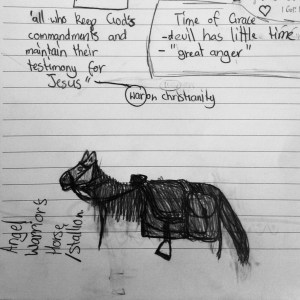 "all who keep God's
commandments and
maintain their
testimony for
Jesus"
War on christianity
Time of Grace
- devil has little time
- "great anger"
Angel
Warrior's
Horse
/Stallion